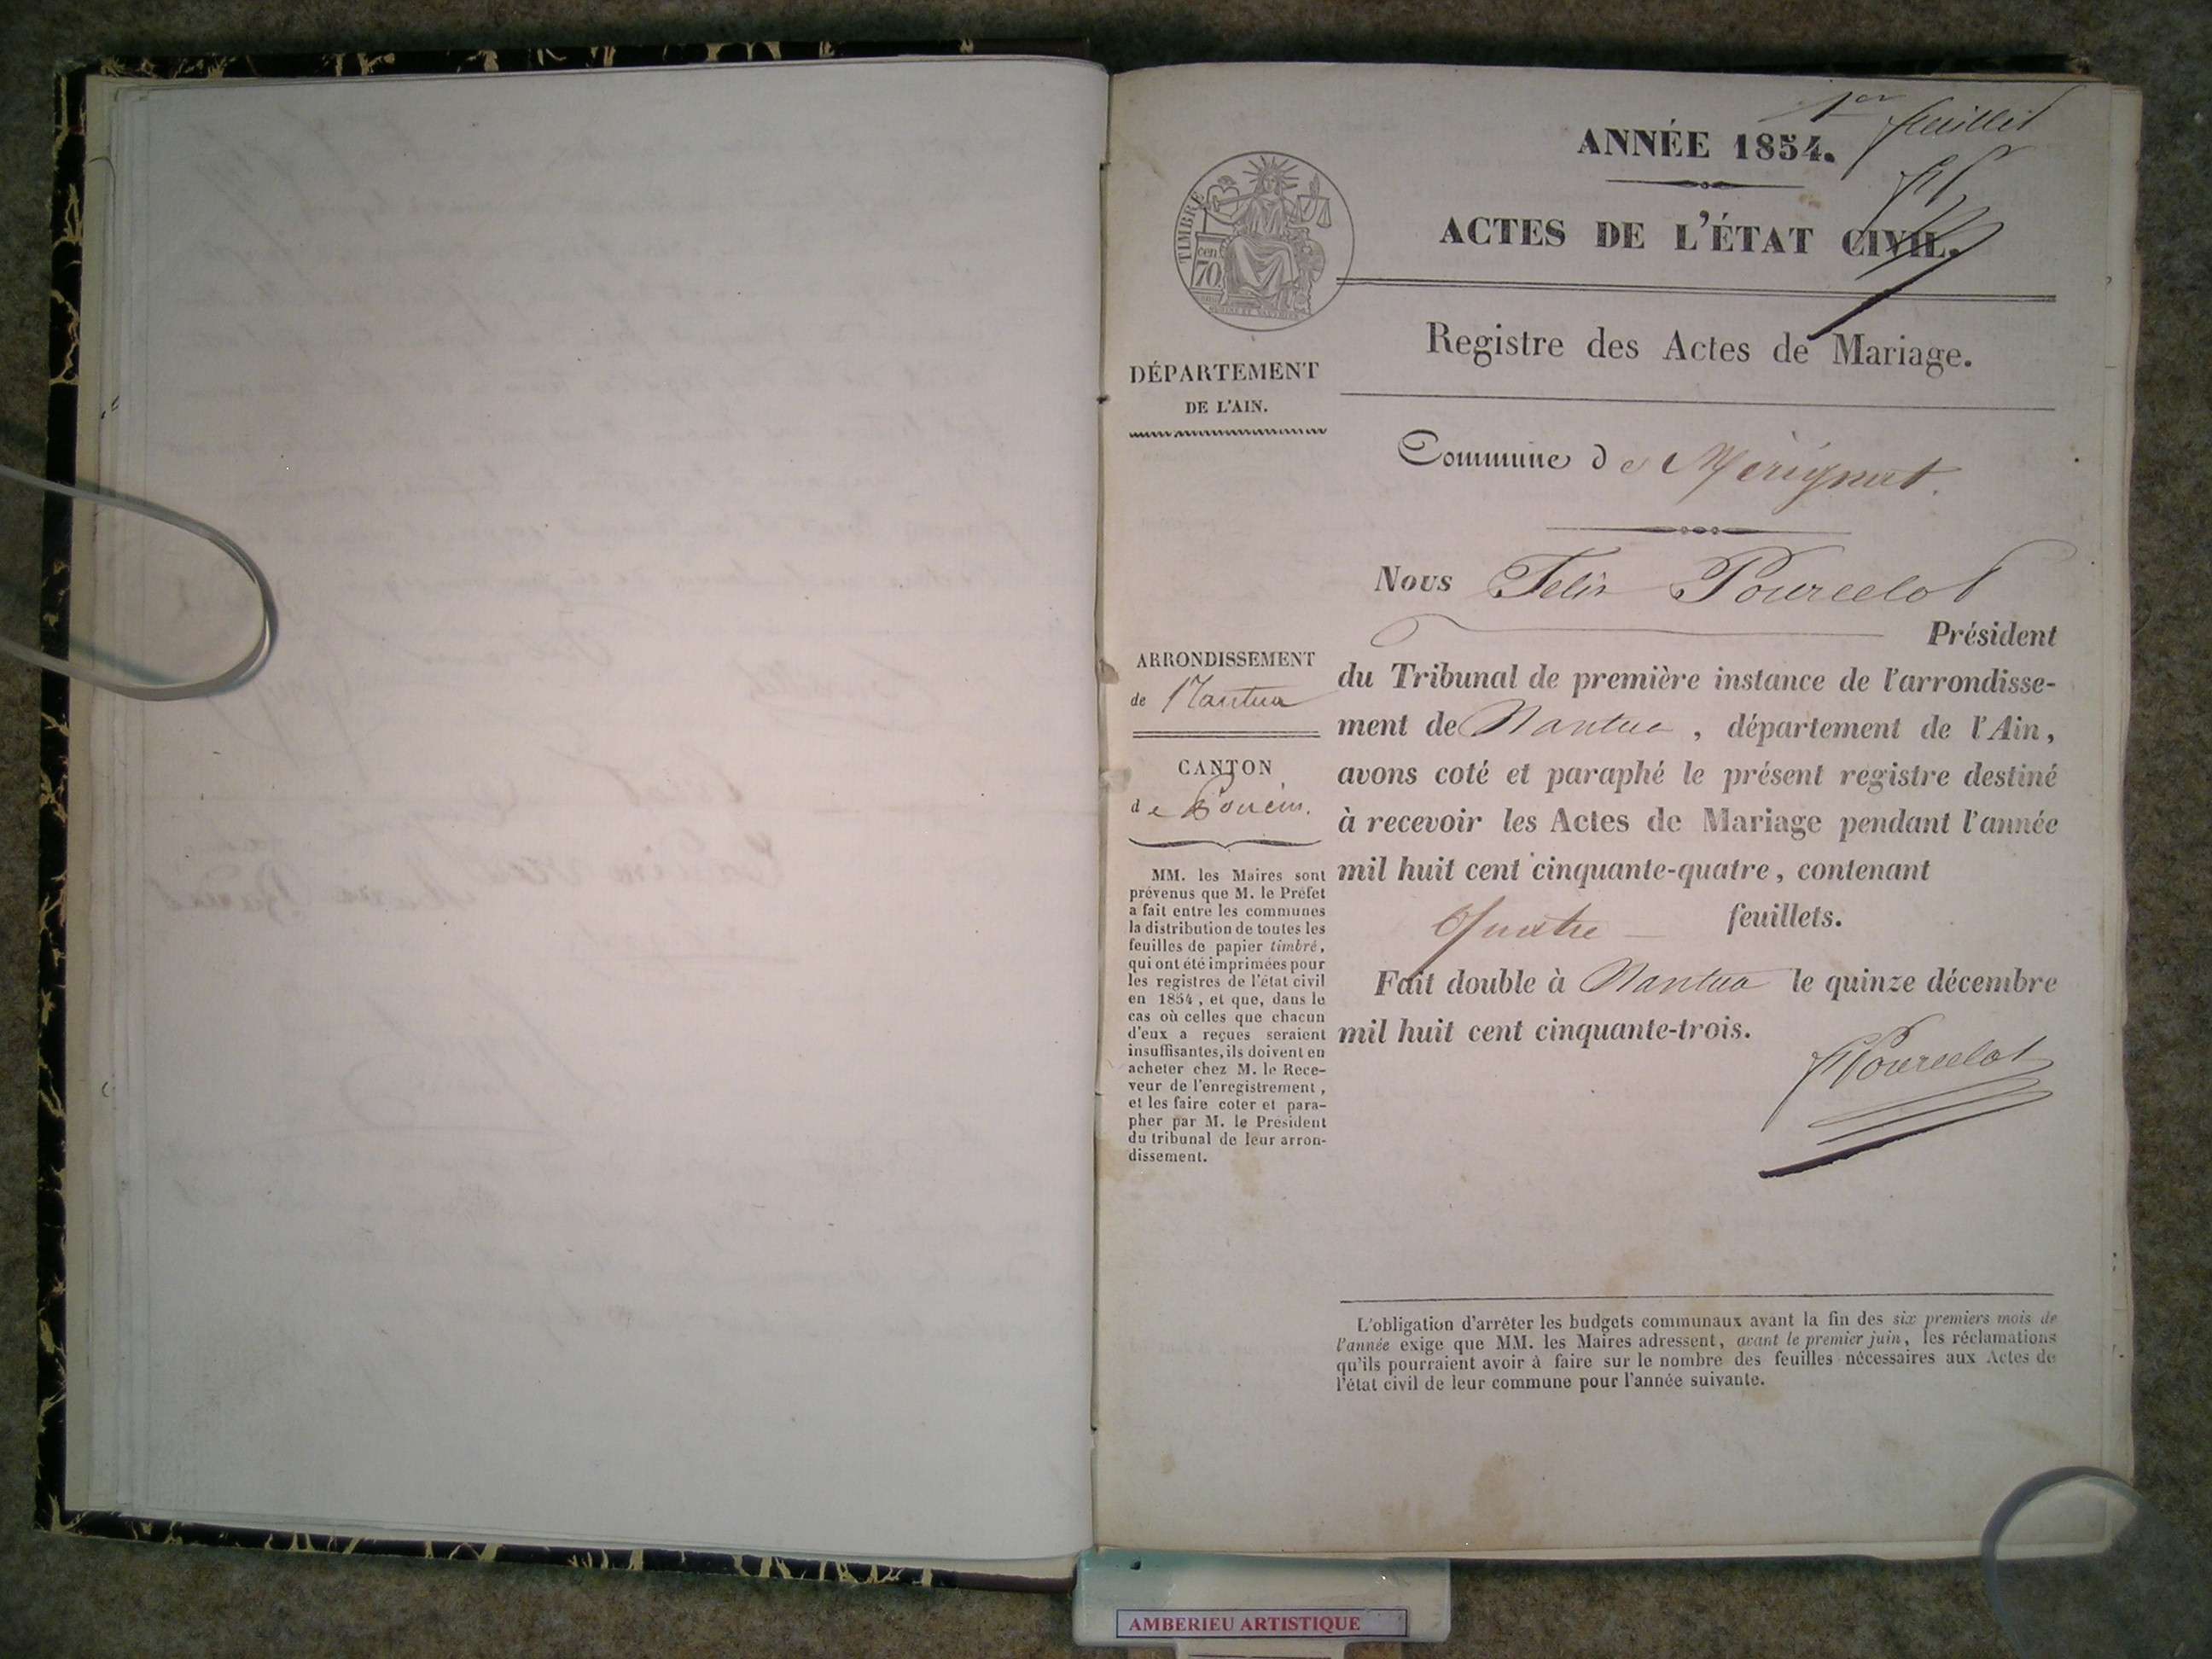 1er feuillet
ANNÉE 1854.
ACTES DE L'ÉTAT CIVIL.
TIMBRE
cen
70
Registre des Actes de Mariage.
DÉPARTEMENT
DE L'AIN.
Commune de Mérignat.
Nous Felix Pourcelot
Président
du Tribunal de première instance de l'arrondisse-
ment de Nantua, département de l'Ain,
avons coté et paraphé le présent registre destiné
à recevoir les Actes de Mariage pendant l'année
mil huit cent cinquante-quatre, contenant
Quatre feuillets.
Fait double à Nantua le quinze décembre
mil huit cent cinquante-trois.
FPourcelot
ARRONDISSEMENT
de Nantua
CANTON
de Poncin.
MM. les Maires sont
prévenus que M. le Préfet
a fait entre les communes
la distribution de toutes les
feuilles de papier timbré,
qui ont été imprimées pour
les registres de l'état civil
en 1854, et que, dans le
cas où celles que chacun
d'eux a reçues seraient
insuffisantes, ils doivent en
acheter chez M. le Rece-
veur de l'enregistrement,
et les faire coter et para-
pher par M. le Président
du tribunal de leur arron-
dissement.
L'obligation d'arrêter les budgets communaux avant la fin des six premiers mois de
l'année exige que MM. les Maires adressent, avant le premier juin, les réclamations
qu'ils pourraient avoir à faire sur le nombre des feuilles nécessaires aux Actes de
l'état civil de leur commune pour l'année suivante.
AMBERIEU ARTISTIQUE